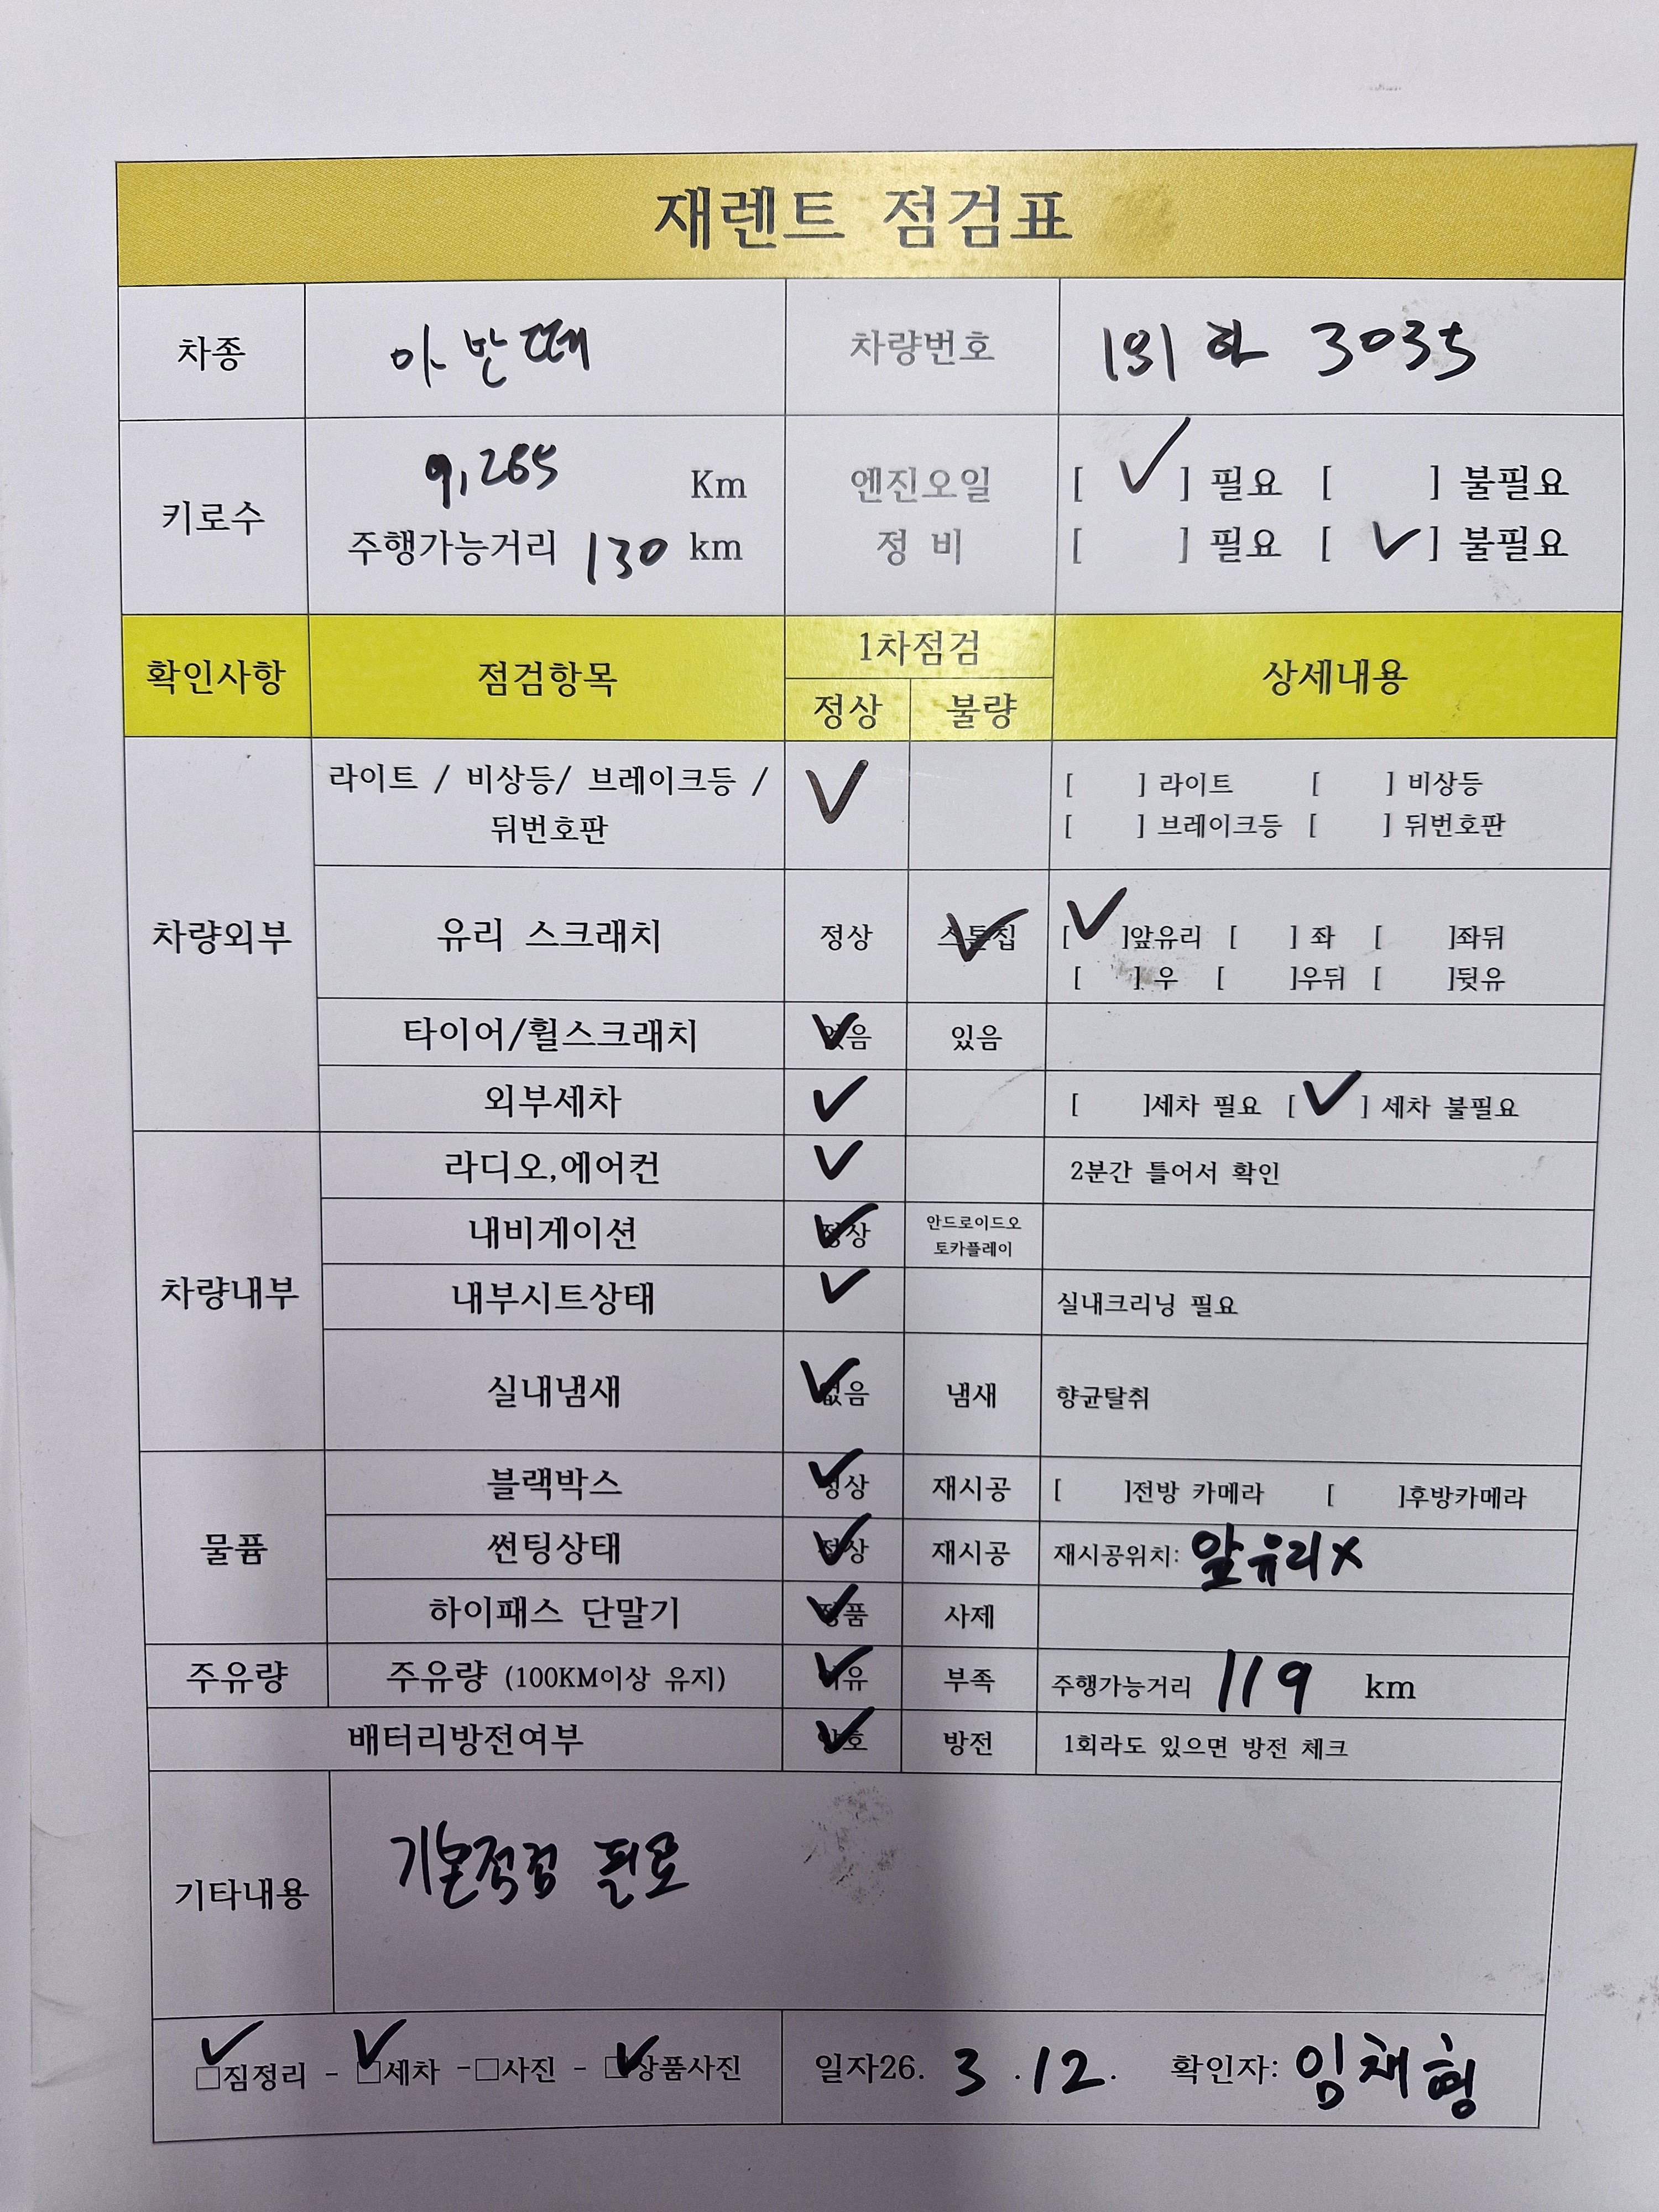 재렌트 점검표
차종 아반떼 차량번호 191 하 3035
키로수 9,265 Km 엔진오일 [ ✓ ] 필요 [ ] 불필요
주행가능거리 130 km 정 비 [ ] 필요 [ ✓ ] 불필요
확인사항 점검항목 1차점검 상세내용
정상 불량
차량외부
라이트 / 비상등/ 브레이크등 / ✓ [ ] 라이트 [ ] 비상등
뒤번호판 [ ] 브레이크등 [ ] 뒤번호판
유리 스크래치 정상 스톤칩 ✓ [ ✓ ]앞유리 [ ] 좌 [ ]좌뒤
[ ] 우 [ ]우뒤 [ ]뒷유
타이어/휠스크래치 없음 ✓ 있음
외부세차 ✓ [ ]세차 필요 [ ✓ ] 세차 불필요
차량내부
라디오,에어컨 ✓ 2분간 틀어서 확인
내비게이션 정상 ✓ 안드로이드오
토카플레이
내부시트상태 ✓ 실내크리닝 필요
실내냄새 없음 ✓ 냄새 향균탈취
물품
블랙박스 정상 ✓ 재시공 [ ]전방 카메라 [ ]후방카메라
썬팅상태 정상 ✓ 재시공 재시공위치: 앞유리 x
하이패스 단말기 정품 ✓ 사제
주유량 주유량 (100KM이상 유지) 여유 ✓ 부족 주행가능거리 119 km
배터리방전여부 양호 ✓ 방전 1회라도 있으면 방전 체크
기타내용 기본점검 필요
✓ □짐정리 - ✓ □세차 -□사진 - ✓ □상품사진 일자26. 3 .12. 확인자: 임채형